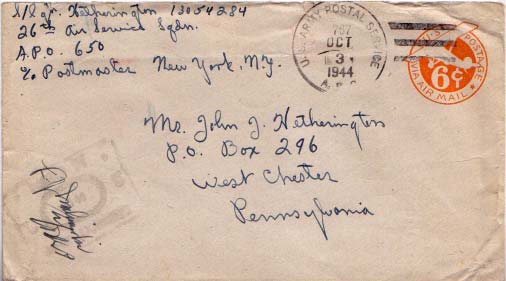 S/Sgt. Hetherington 13054284
26th Air Service Sqdn.
A.P.O. 650
c/o Postmaster New York, N.Y.
U.S. ARMY POSTAL SERVICE
OCT
3
1944
A.P.O.
U.S. POSTAGE
6¢
VIA AIR MAIL
Mr. John J. Hetherington
P.O. Box 296
West Chester
Pennsylvania